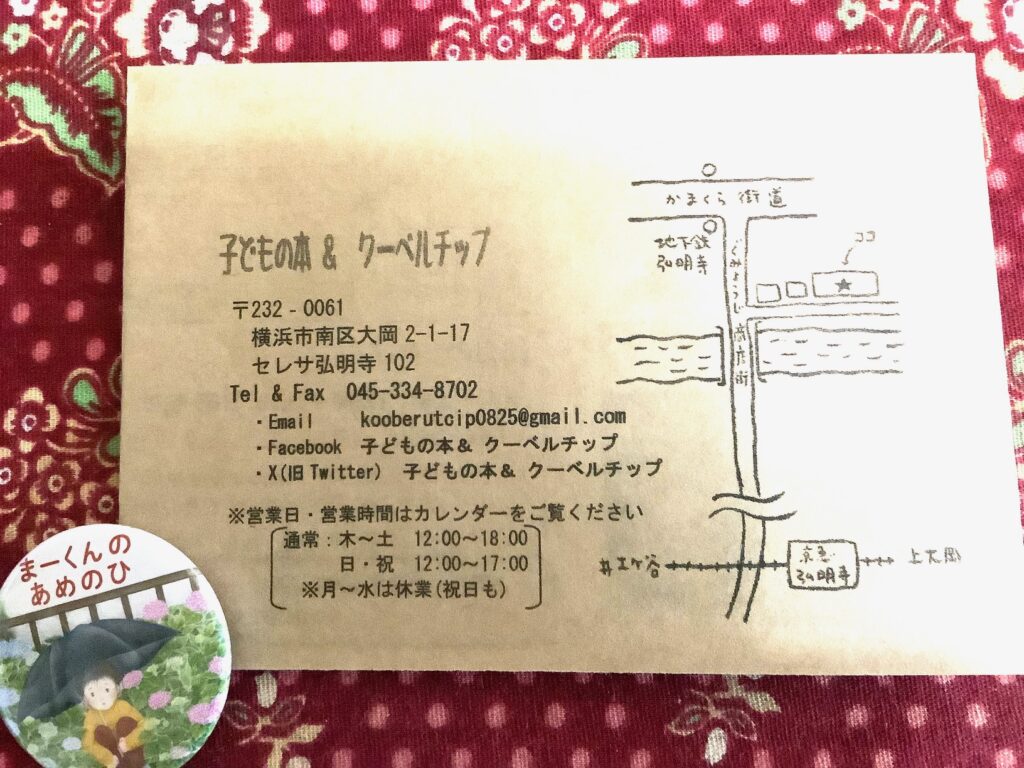 子どもの本 & クーベルチップ
〒232 - 0061
横浜市南区大岡 2-1-17
セレサ弘明寺 102
Tel & Fax 045-334-8702
・Email kooberutcip0825@gmail.com
・Facebook 子どもの本& クーベルチップ
・X(旧 Twitter) 子どもの本& クーベルチップ
※営業日・営業時間はカレンダーをご覧ください
通常：木～土 12:00～18:00
日・祝 12:00～17:00
※月～水は休業(祝日も)
かまくら 街道
地下鉄
弘明寺
ココ
ぐみょうじ 商店街
井土ヶ谷
京急
弘明寺
上大岡
まーくんの
あめのひ